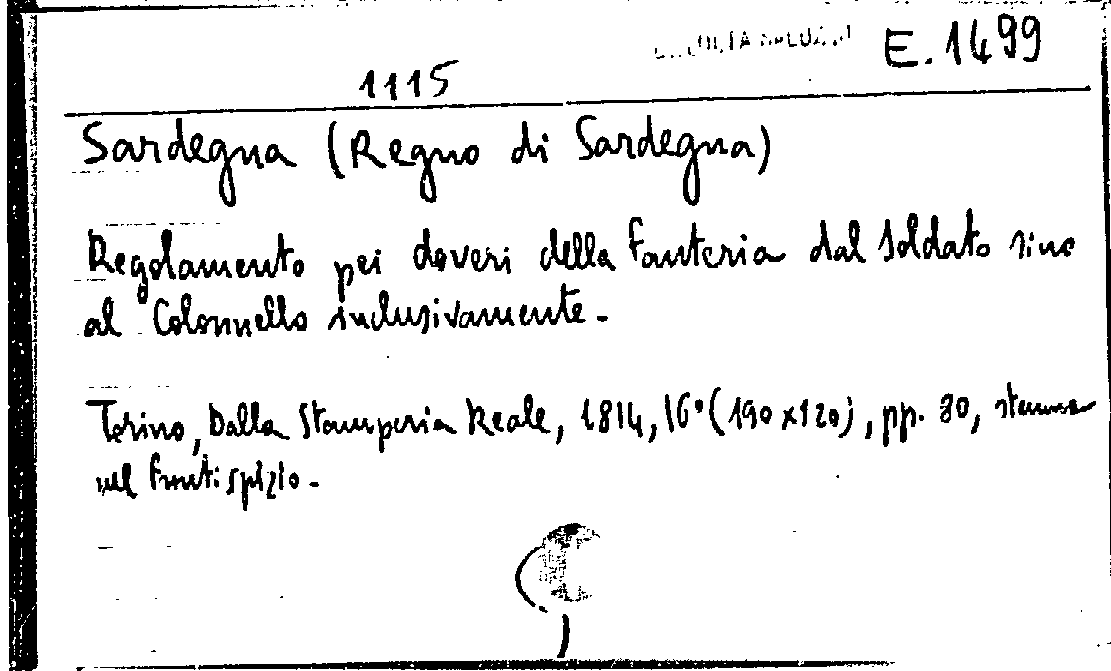 E.1499
1115
Sardegna (Regno di Sardegna)
Regolamento pei doveri della Fanteria dal Soldato sino
al Colonnello inclusivamente.
Torino, Dalla Stamperia Reale, 1814, 16° (190x120), pp. 80, stemma
nel frontispizio.